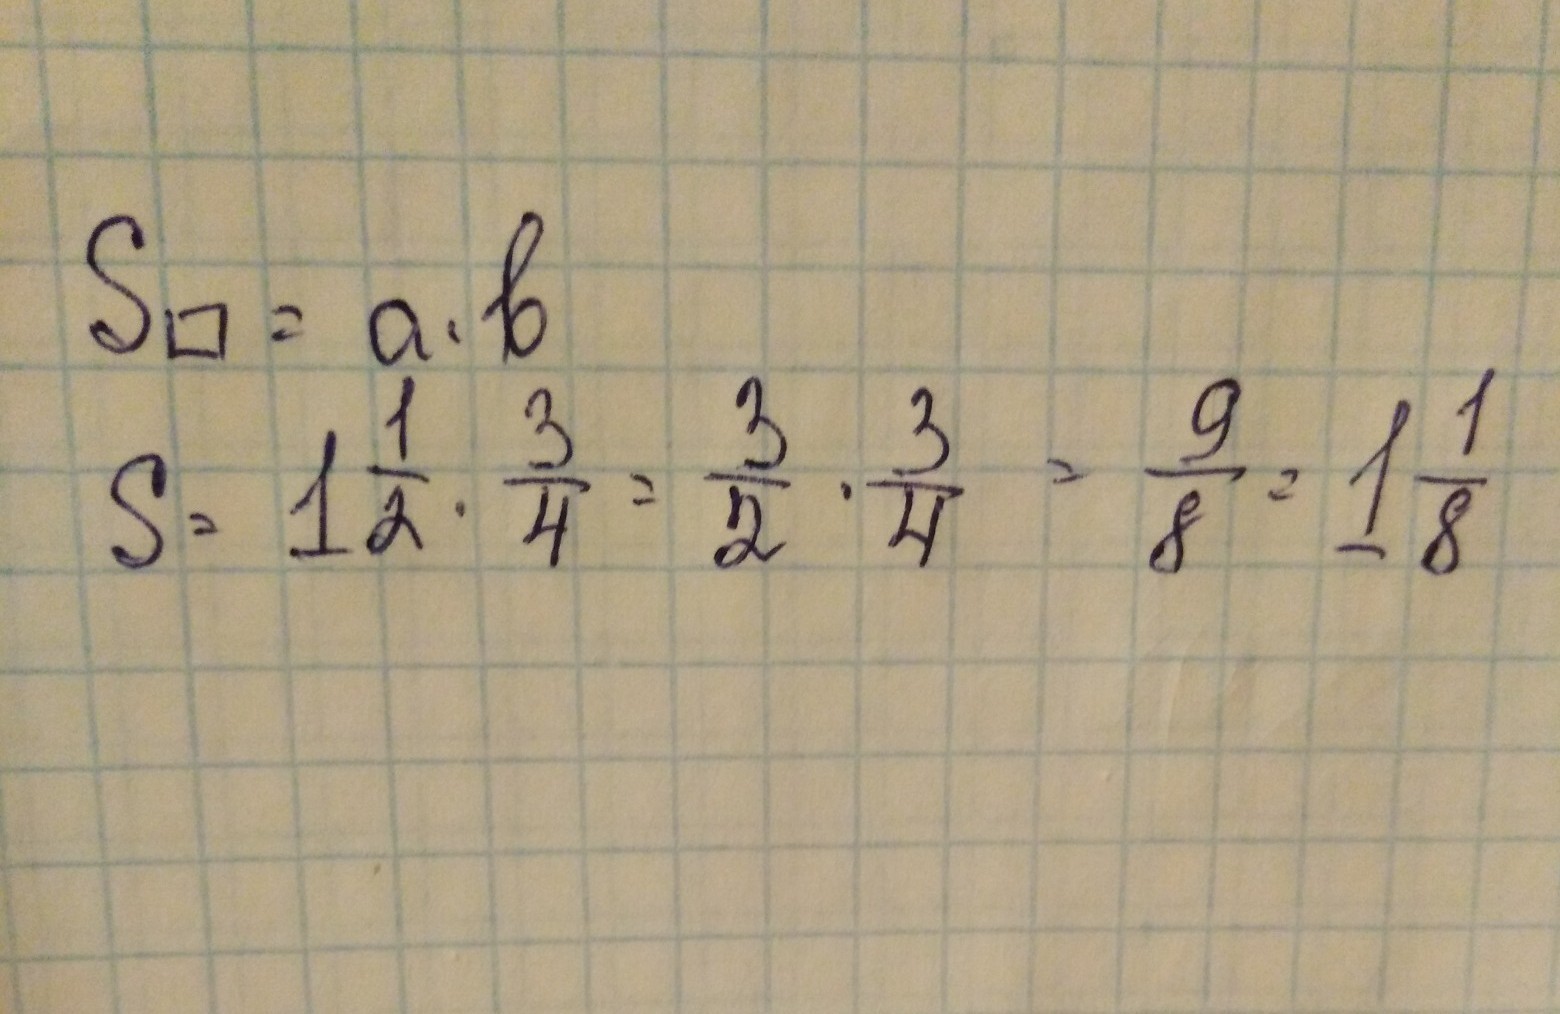 S□ = a · b
S = 1 1/2 · 3/4 = 3/2 · 3/4 = 9/8 = 1 1/8